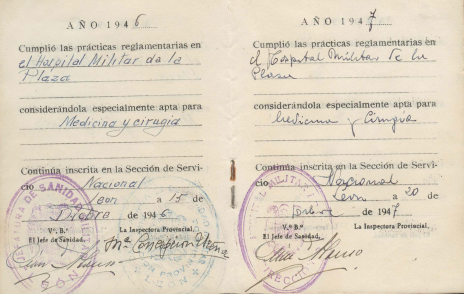 AÑO 1946
Cumplió las prácticas reglamentarias en
el Hospital Militar de la
Plaza
considerándola especialmente apta para
Medicina y cirugia
Continúa inscrita en la Sección de Servi-
cio Nacional
Leon a 15 de
Dicbre de 1946
V.º B.º La Inspectora Provincial,
El Jefe de Sanidad,
Mª Concepcion
AÑO 1947
Cumplió las prácticas reglamentarias en
el Hospital Militar de la
Plaza
considerándola especialmente apta para
Medicina y Cirugia
Continúa inscrita en la Sección de Servi-
cio Nacional
León a 20 de
de 1947
V.º B.º La Inspectora Provincial,
El Jefe de Sanidad,